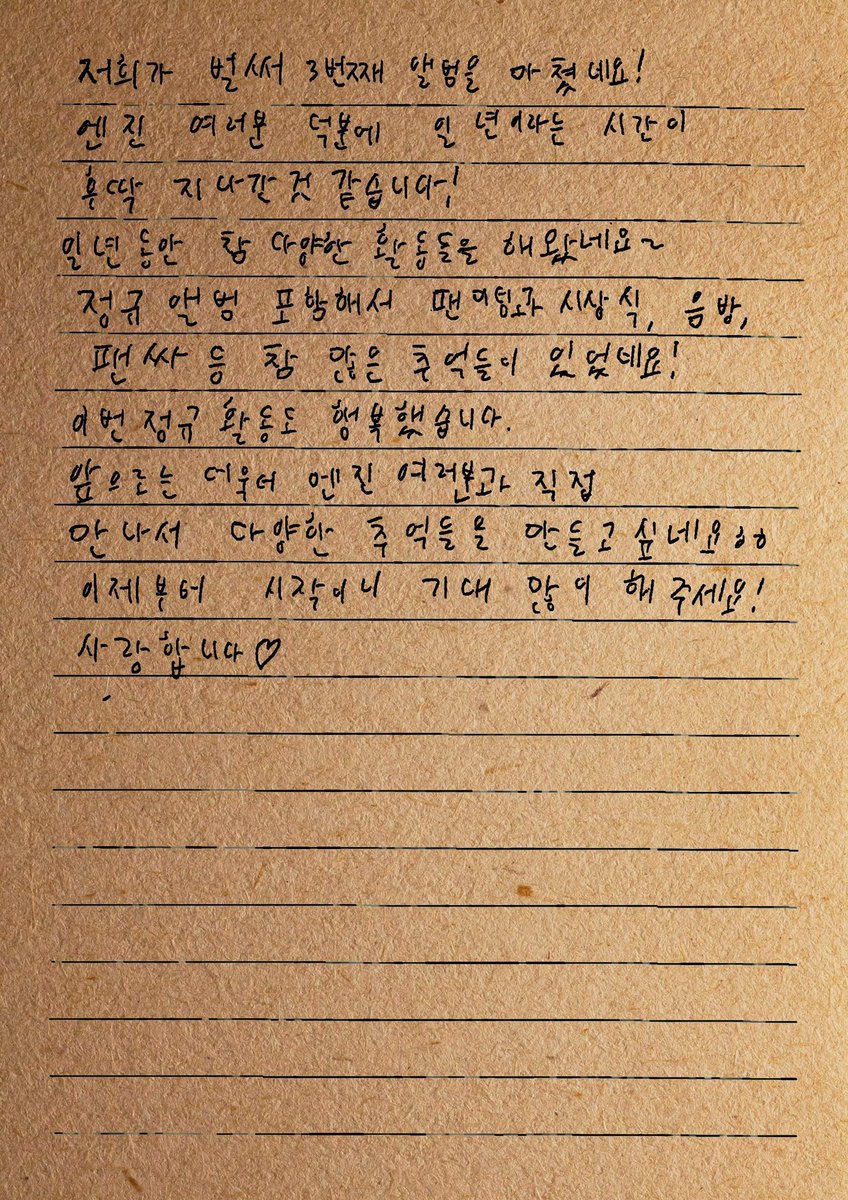 저희가 벌써 3번째 앨범을 마쳤네요!
엔진 여러분 덕분에 일 년이라는 시간이
후딱 지나간것 같습니다!
일년동안 참 다양한 활동들을 해왔네요~
정규앨범 포함해서 팬미팅과 시상식, 음방,
팬싸 등 참 많은 추억들이 있었네요!
이번 정규 활동도 행복했습니다.
앞으로는 더욱더 엔진 여러분과 직접
만나서 다양한 추억들을 만들고 싶네요ㅎㅎ
이제부터 시작이니 기대 많이 해주세요!
사랑합니다♡